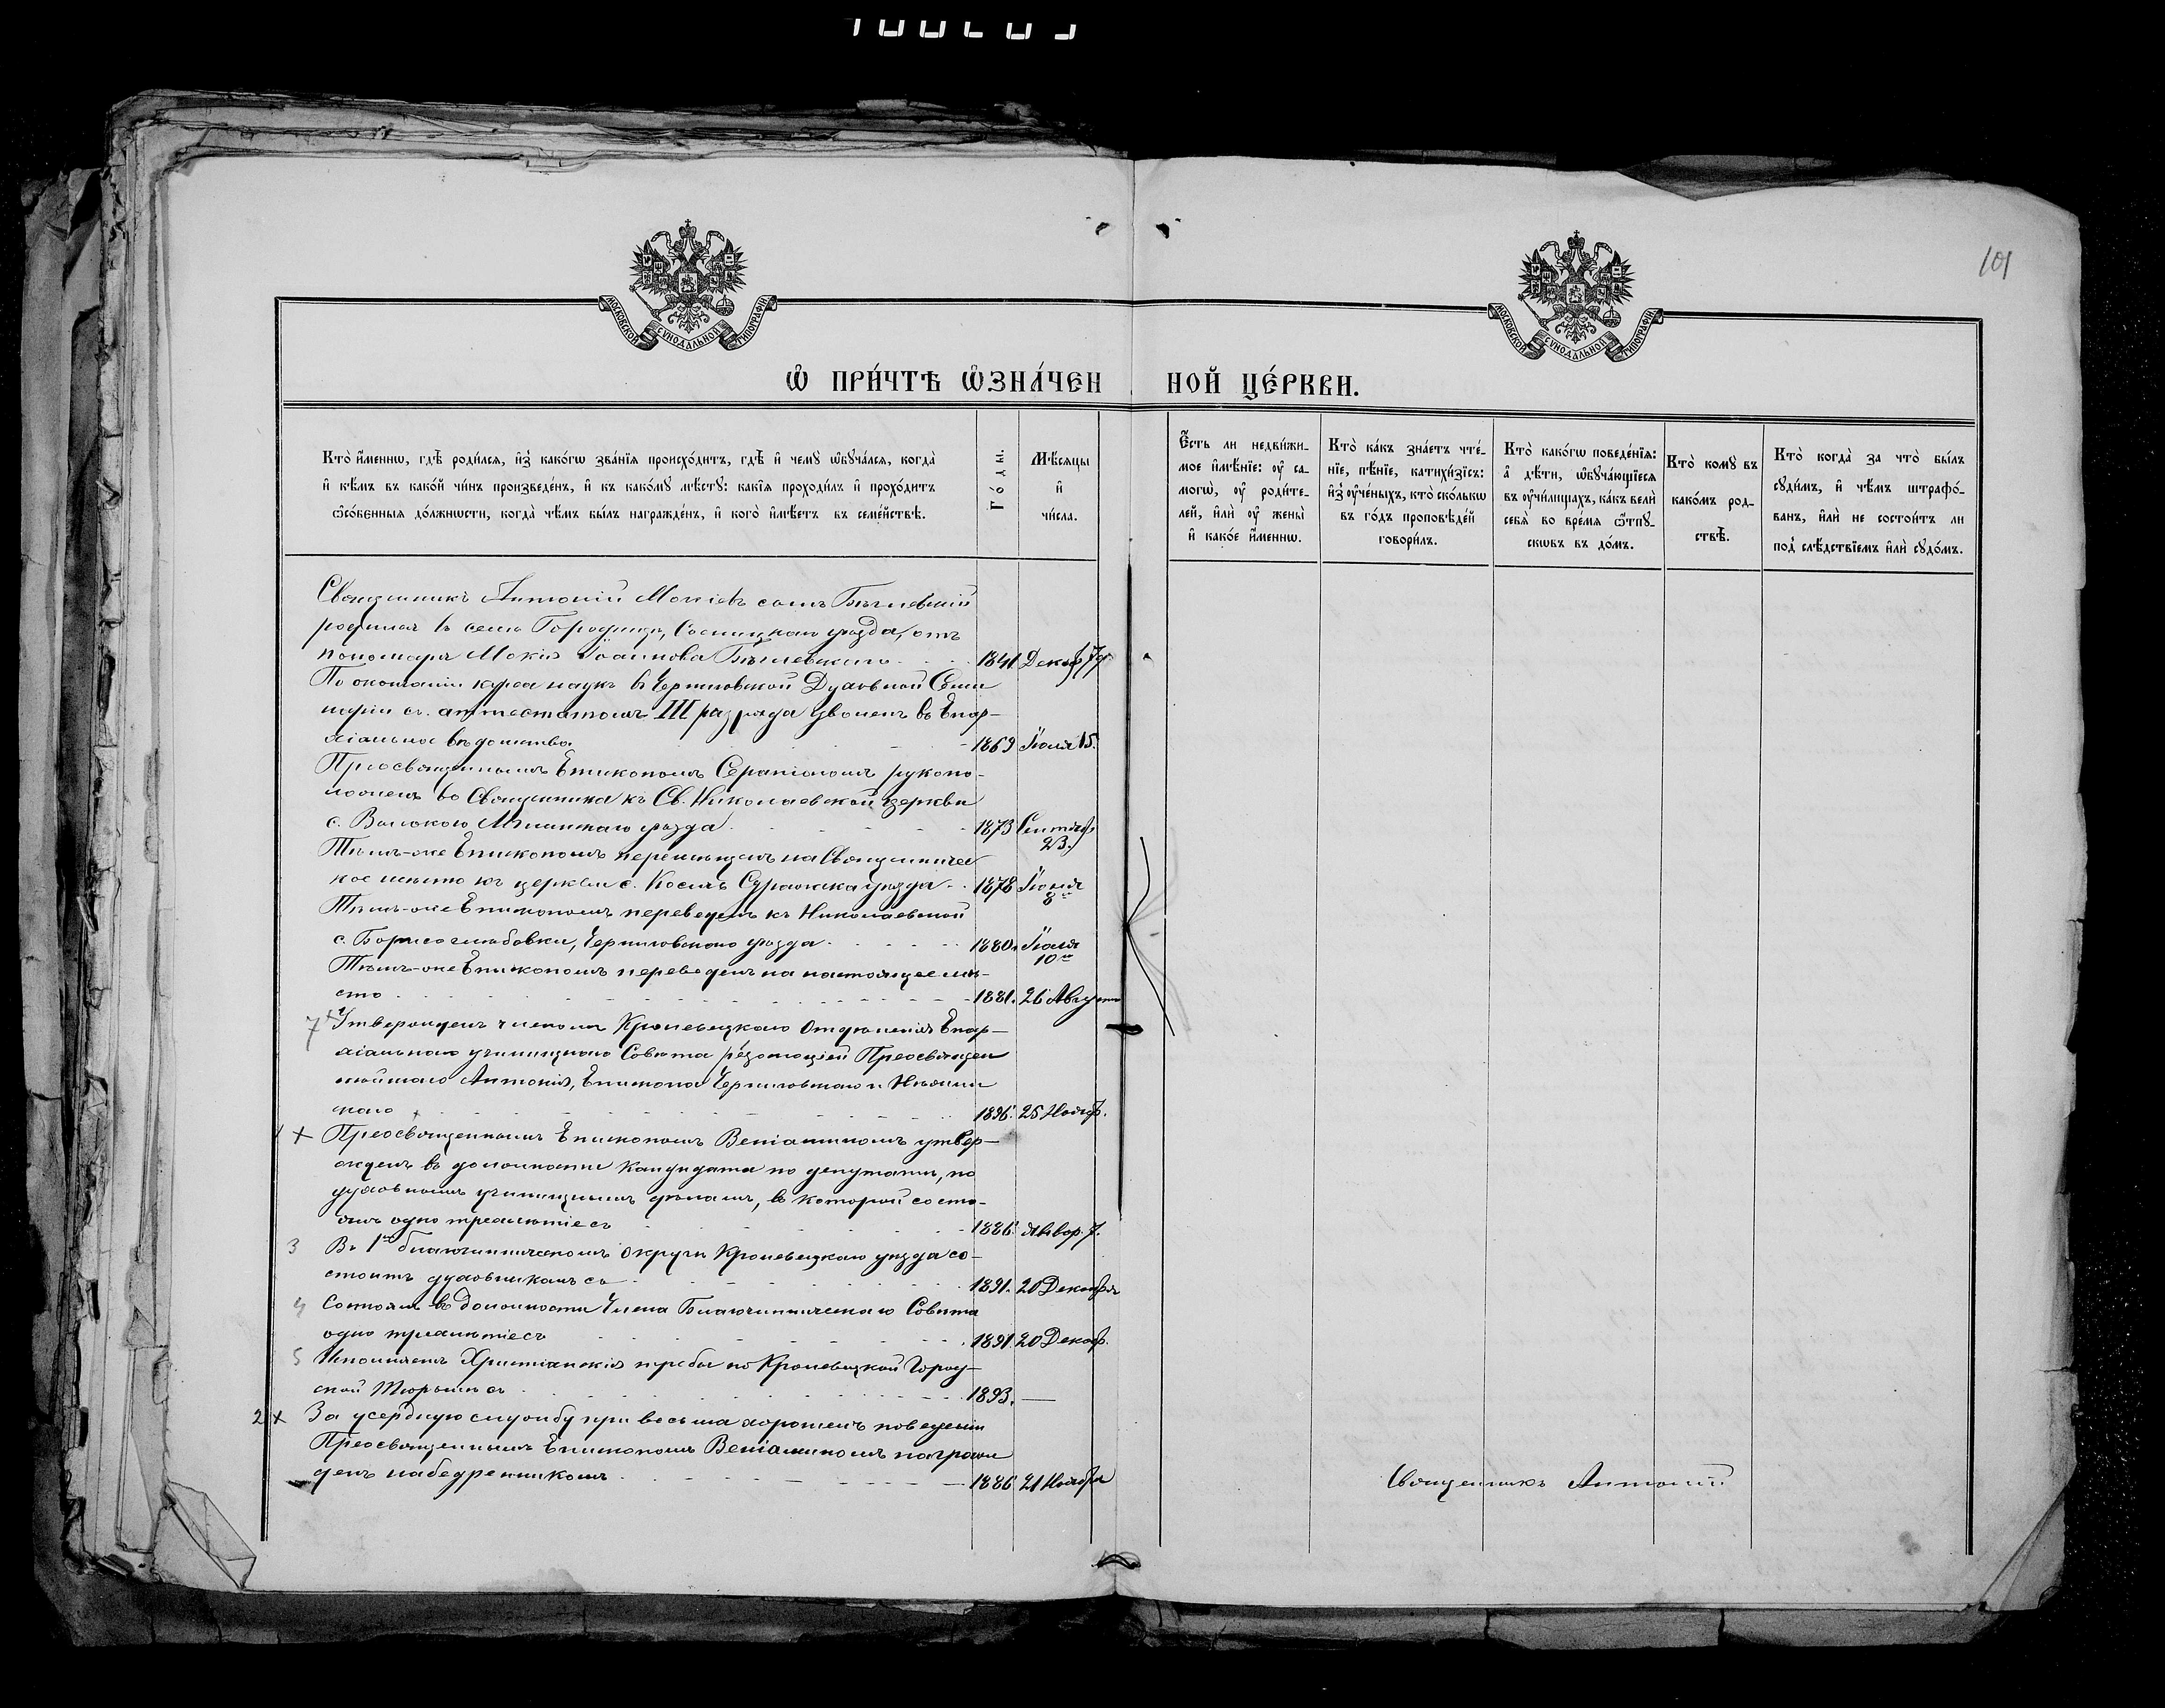 101
МОСКОВСКОЙ СУНОДАЛЬНОЙ ТИПОГРАФІИ
МОСКОВСКОЙ СУНОДАЛЬНОЙ ТИПОГРАФІИ
Ѡ҆ ПРИ́ЧТѢ Ѡ҆ЗНА́ЧЕННОЙ ЦЕ́РКВИ.
Кто̀ и҆́меннѡ, гдѣ̀ роди́лсѧ, и҆з̾ како́гѡ зва́нїѧ происхо́дитъ, гдѣ̀ и҆ чемꙋ̀ ѡ҆бꙋча́лсѧ, когда̀
и҆ кѣ́мъ въ како́й чи́нъ произведе́нъ, и҆ къ како́мꙋ мѣ́стꙋ: какі̑ѧ проходи́лъ и҆ прохо́дитъ
ѻ҆со́бенныѧ до́лжнѡсти, когда̀ чѣ́мъ бы́лъ награжде́нъ, и҆ кого̀ и҆мѣ́етъ въ семе́йствѣ.
Го́ды.
Мѣ́сѧцы
и҆
чи́сла.
Е҆́сть ли недви́жи-
мое и҆мѣ́нїе: оу҆ са-
могѡ̀, оу҆ роди́те-
лей, и҆лѝ оу҆ жены̀
и҆ како́е и҆́меннѡ.
Кто̀ ка́къ зна́етъ чте́-
нїе, пѣ́нїе, катихи́зїсъ:
и҆з̾ оу҆че́ныхъ, кто̀ ско́лькѡ
въ го́дъ проповѣ́дей
говори́лъ.
Кто̀ како́гѡ поведе́нїѧ:
а҆ дѣ́ти, ѡ҆бꙋча́ющїесѧ
въ оу҆чи́лищахъ, ка́къ велѝ
себѧ̀ во вре́мѧ ѿпꙋ-
скѡвъ въ до́мъ.
Кто̀ комꙋ̀ въ
како́мъ род-
ствѣ̀.
Кто̀ когда̀ за что̀ бы́лъ
сꙋди́мъ, и҆ чѣ́мъ штрафо́-
ванъ, и҆лѝ не состои́тъ ли
под̾ слѣ́дствїемъ и҆лѝ сꙋдо́мъ.
Священникъ Антоній Мокіевъ сынъ
родился въ селѣ Городищѣ, Сосницкаго уѣзда, отъ
пономаря Мокія Іоаннова 1841 Декабр
По окончаніи курса наукъ въ Черниговской Духовной Семи
наріи съ аттестатомъ III разряда уволенъ въ Епар-
хіальное вѣдомство. 1869 Іюля 15.
Преосвященнымъ Епископомъ Серапіономъ рукопо-
ложенъ во Священника къ Св. Николаевской церкви
с. Мглинскаго уѣзда 1873 Сентябр 23.
Тѣмъ-же Епископомъ перемѣщенъ на Священничес
кое мѣсто къ церкви с. Сурожска уѣзда 1878
Тѣмъ-же Епископомъ переведенъ къ Николаевской
с. Черниговскаго уѣзда 1880. 10
Тѣмъ-же Епископомъ переведенъ на настоящее мѣ-
сто 1881. 26 Августа
7 Утвержденъ членомъ Кролевецкаго Отдѣленія Епар-
хіальнаго училищнаго Совѣта резолюціей Преосвящен
нѣйшаго Антонія, Епископа Черниговскаго и Нѣжин
скаго 1896. 25 Ноябр.
1 + Преосвященнымъ Епископомъ Веніаминомъ утвер-
жденъ въ должности Кандидата по депутатѣ, по
духовнымъ училищнымъ дѣламъ, въ которой состо-
ялъ одно трехлѣтіе съ 1886. 7.
3 Въ 1мъ благочинническомъ округѣ Кролевецкаго уѣзда со-
стоитъ духовникомъ съ 1891. 20 Декабря
4 Состоялъ въ должности Члена Благочинническаго Совѣта
одно трехлѣтіе съ 1891. 20 Декабр.
5 Исполняетъ Христіанскія требы по Кролевецкой Город-
ской Тюрьмѣ съ 1893. —
2 + За усердную службу при весьма хорошемъ поведеніи
Преосвященнымъ Епископомъ Веніаминомъ награж
денъ набедренникомъ 1886 21 Ноября
Священникъ Антоній